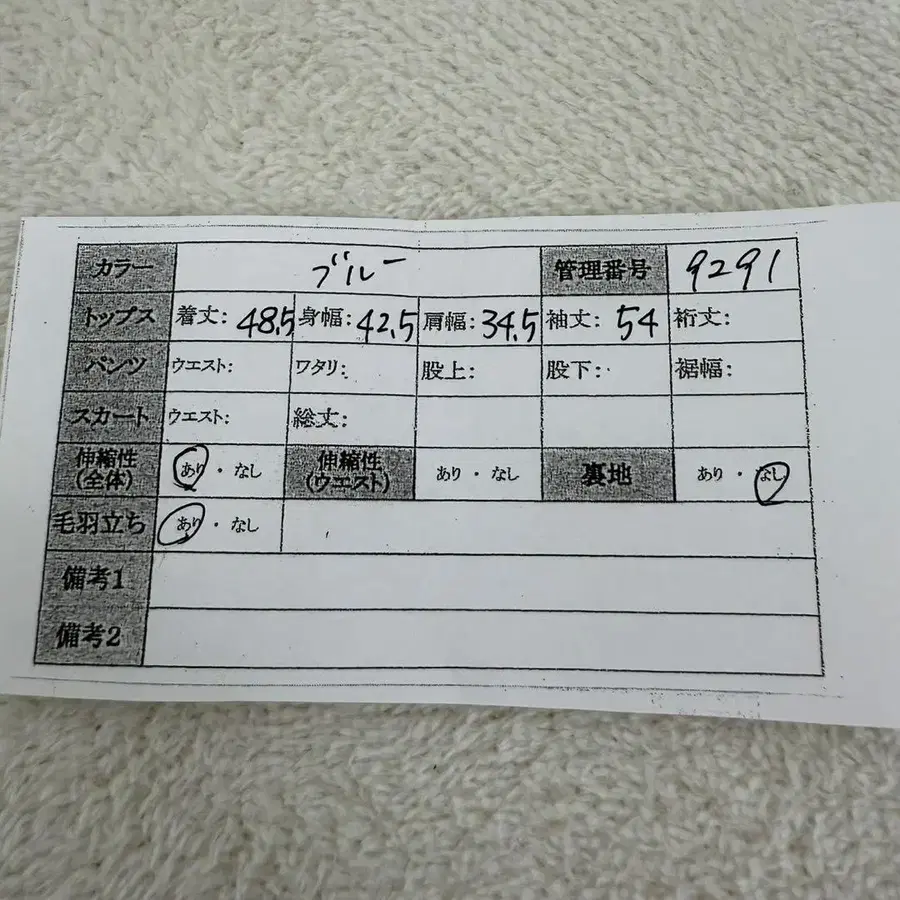 カラー ブルー 管理番号 9291
トップス 着丈: 48.5 身幅: 42.5 肩幅: 34.5 袖丈: 54 裄丈:
パンツ ウエスト: ワタリ: 股上: 股下: 裾幅:
スカート ウエスト: 総丈:
伸縮性(全体) あり・なし 伸縮性(ウエスト) あり・なし 裏地 あり・なし
毛羽立ち あり・なし
備考1
備考2